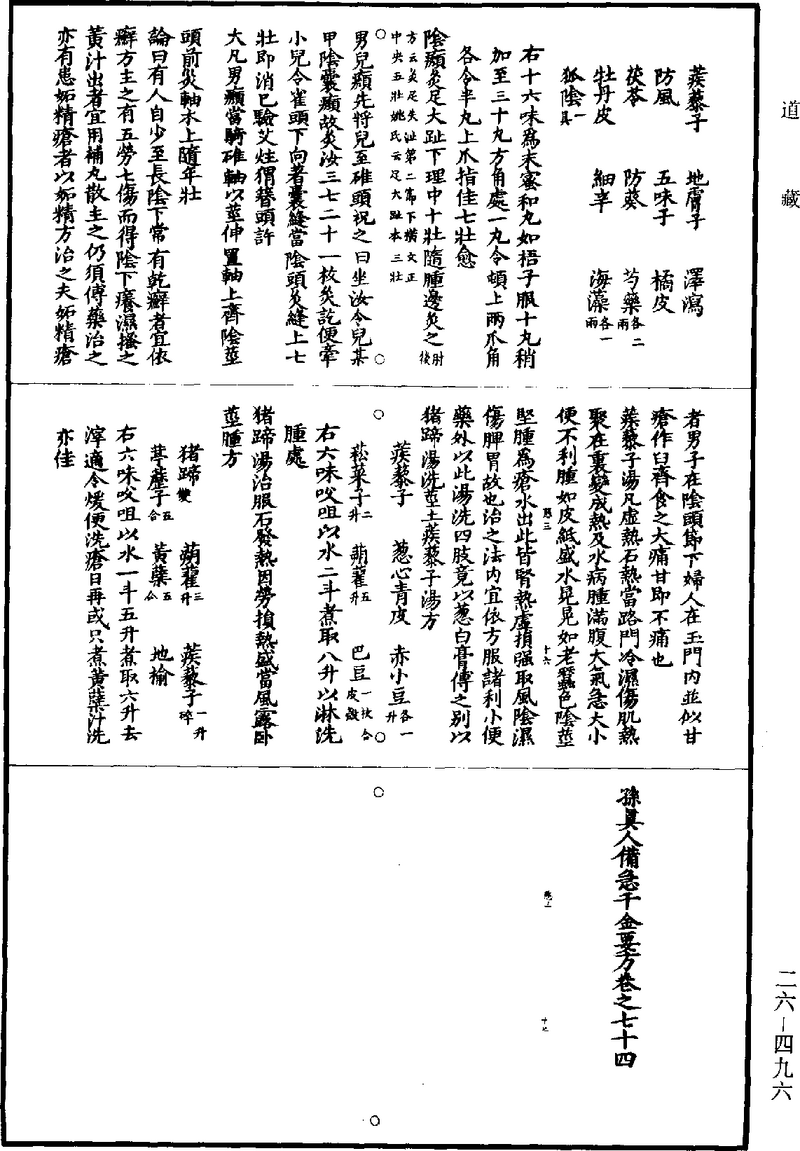 道藏
蒺藜子　地膚子　澤瀉
防風　五味子　橘皮
茯苓　防葵　芍藥各二兩
牡丹皮　細辛　海藻各一兩
狐陰一具
右十六味爲末蜜和丸如梧子服十丸稍
加至三十丸方角處一丸令頓上兩爪角
各令半丸上爪指佳七壯愈
陰㿗灸足大趾下理中十壯隨腫邊灸之肘後
方云灸足大趾第二節下橫文正
中央五壯姚氏云足大趾本三壯
男兒㿗先將兒至碓頭祝之曰坐汝令兒某
甲陰囊㿗故灸汝三七二十一枚灸訖便牽
小兒令雀頭下向著囊縫當陰頭灸縫上七
壯即消已驗艾炷猬簪頭許
大凡男㿗當騎碓軸以莖伸置軸上齊陰莖
頭前灸軸木上隨年壯
論曰有人自少至長陰下常有乾癬者宜依
癬方主之有五勞七傷而得陰下癢濕搔之
黃汁出者宜用補丸散主之仍須傅藥治之
亦有患妬精瘡者以妬精方治之夫妬精瘡
者男子在陰頭節下婦人在玉門內並似甘
瘡作臼齊食之大痛甘即不痛也
蒺藜子湯凡虛熱石熱當路門冷濕傷肌熱
聚在裏變成熱及水病腫滿腹大氣急大小
便不利腫如皮紙盛水晃晃如老蠶色陰莖
堅腫爲瘡水出此皆腎熱虛損強取風陰濕
傷脾胃故也治之法內宜依方服諸利小便
藥外以此湯洗四肢竟以葱白膏傅之別以
猪蹄湯洗莖上蒺藜子湯方
蒺藜子　葱心青皮　赤小豆各一升
菘菜子二升　蒴藋五升　巴豆一枚合皮殼
右六味㕮咀以水二斗煮取八升以淋洗
腫處
猪蹄湯治服石發熱因勞損熱盛當風露臥
莖腫方
猪蹄雙　蒴藋三升　蒺藜子一升碎
葶藶子五合　黃蘗五合　地榆
右六味㕮咀以水一斗五升煮取六升去
滓適令煖便洗瘡日再或只煮黃蘗汁洗
亦佳
孫眞人備急千金要方卷之七十四
二六-四九六